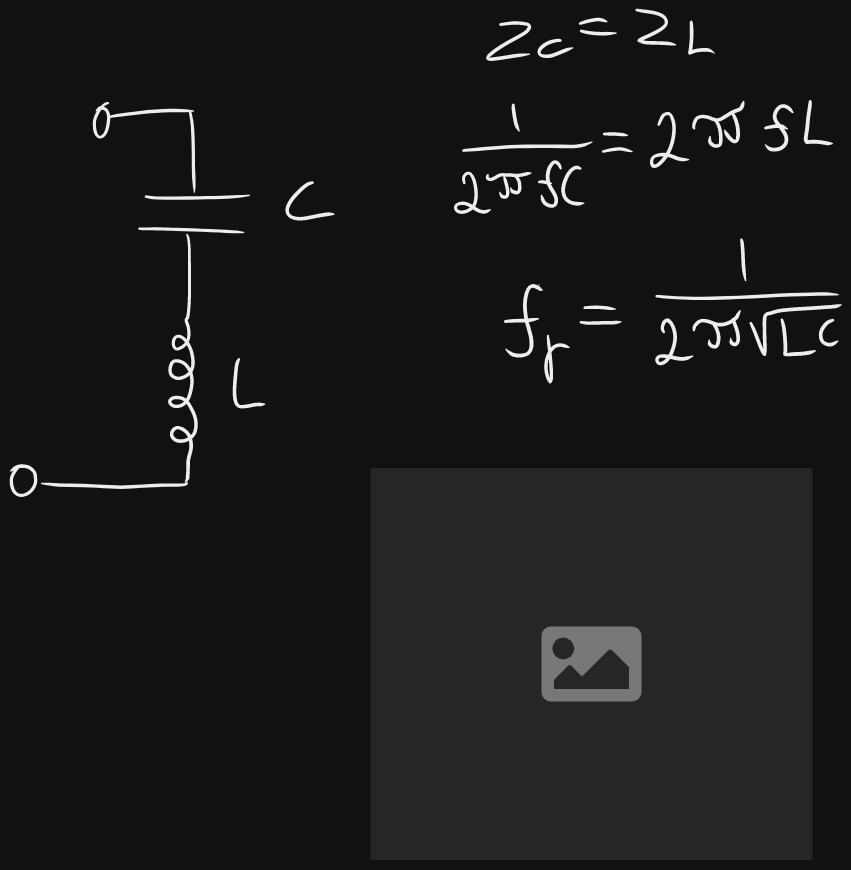 Zc = ZL
C
1/2πfC = 2πfL
fr = 1/2π√LC
L